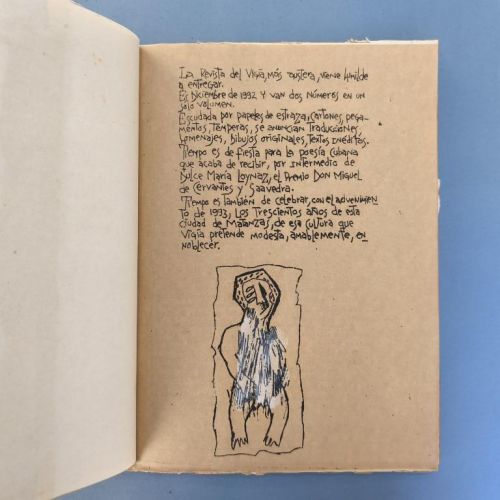 La Revista del Vigía, más austera, viene humilde
a entregar.
Es Diciembre de 1992 y van dos números en un
solo volumen.
Escudada por papeles de estraza, cartones, pega-
mentos, témperas, se anuncian traducciones,
homenajes, dibujos originales, textos inéditos.
Tiempo es de fiesta para la poesía cubana
que acaba de recibir, por intermedio de
Dulce María Loynaz, el Premio Don Miguel
de Cervantes y Saavedra.
Tiempo es también de celebrar, con el advenimien
to de 1993, los trescientos años de esta
ciudad de Matanzas, de esa cultura que
Vigía pretende modesta, amablemente, en
noblecer.